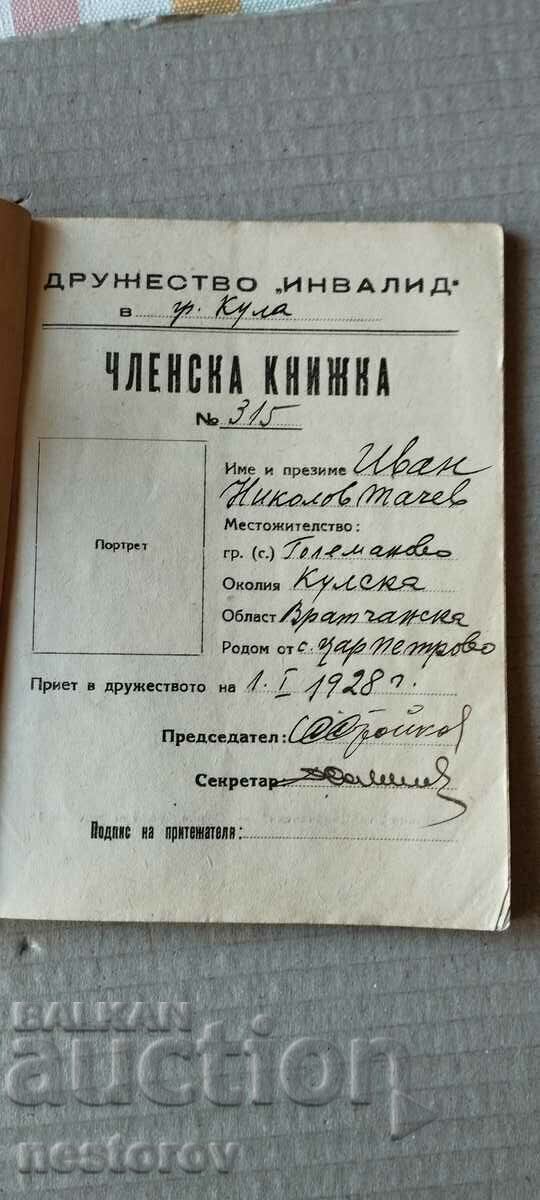 ДРУЖЕСТВО „ИНВАЛИД“
в гр. Кула
ЧЛЕНСКА КНИЖКА
№ 315
Портрет
Име и презиме Иван
Николов Тачев
Местожителство:
гр. (с.) Големаново
Околия Кулска
Област Вратчанска
Родом от с. Цар Петрово
Приет в дружеството на 1. I 1928 г.
Председател:
Секретар
Подпис на притежателя:
BALKAN
auction
nestorov